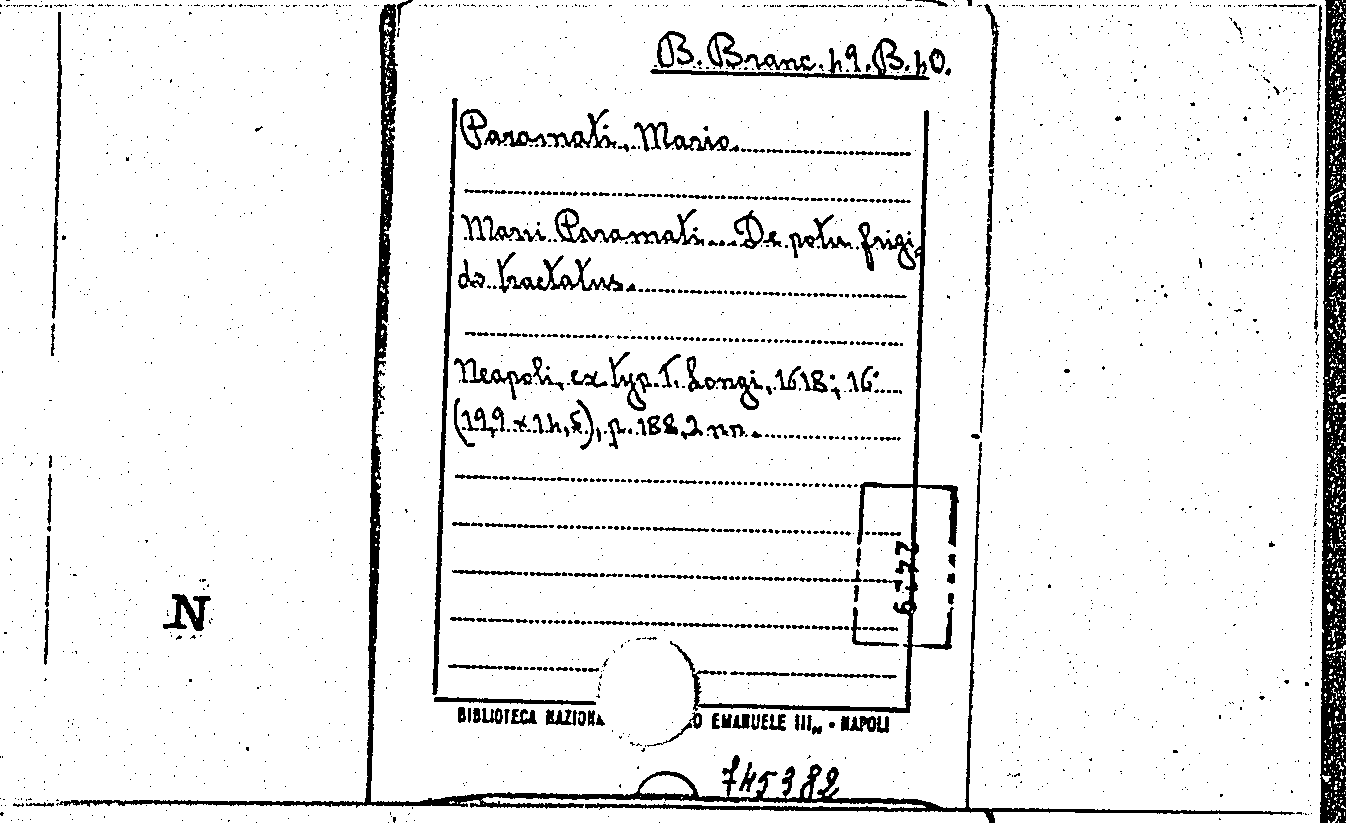 B. Branc. 49. B. 40.
Paramati, Mario.
Marii Paramati... De potu frigi-
do tractatus.
Neapoli, ex typ. T. Longi, 1618; 16°
(19,9 x 14,5), p. 188, 2 nn.
N
BIBLIOTECA NAZIONA O EMANUELE III„ - NAPOLI
745382